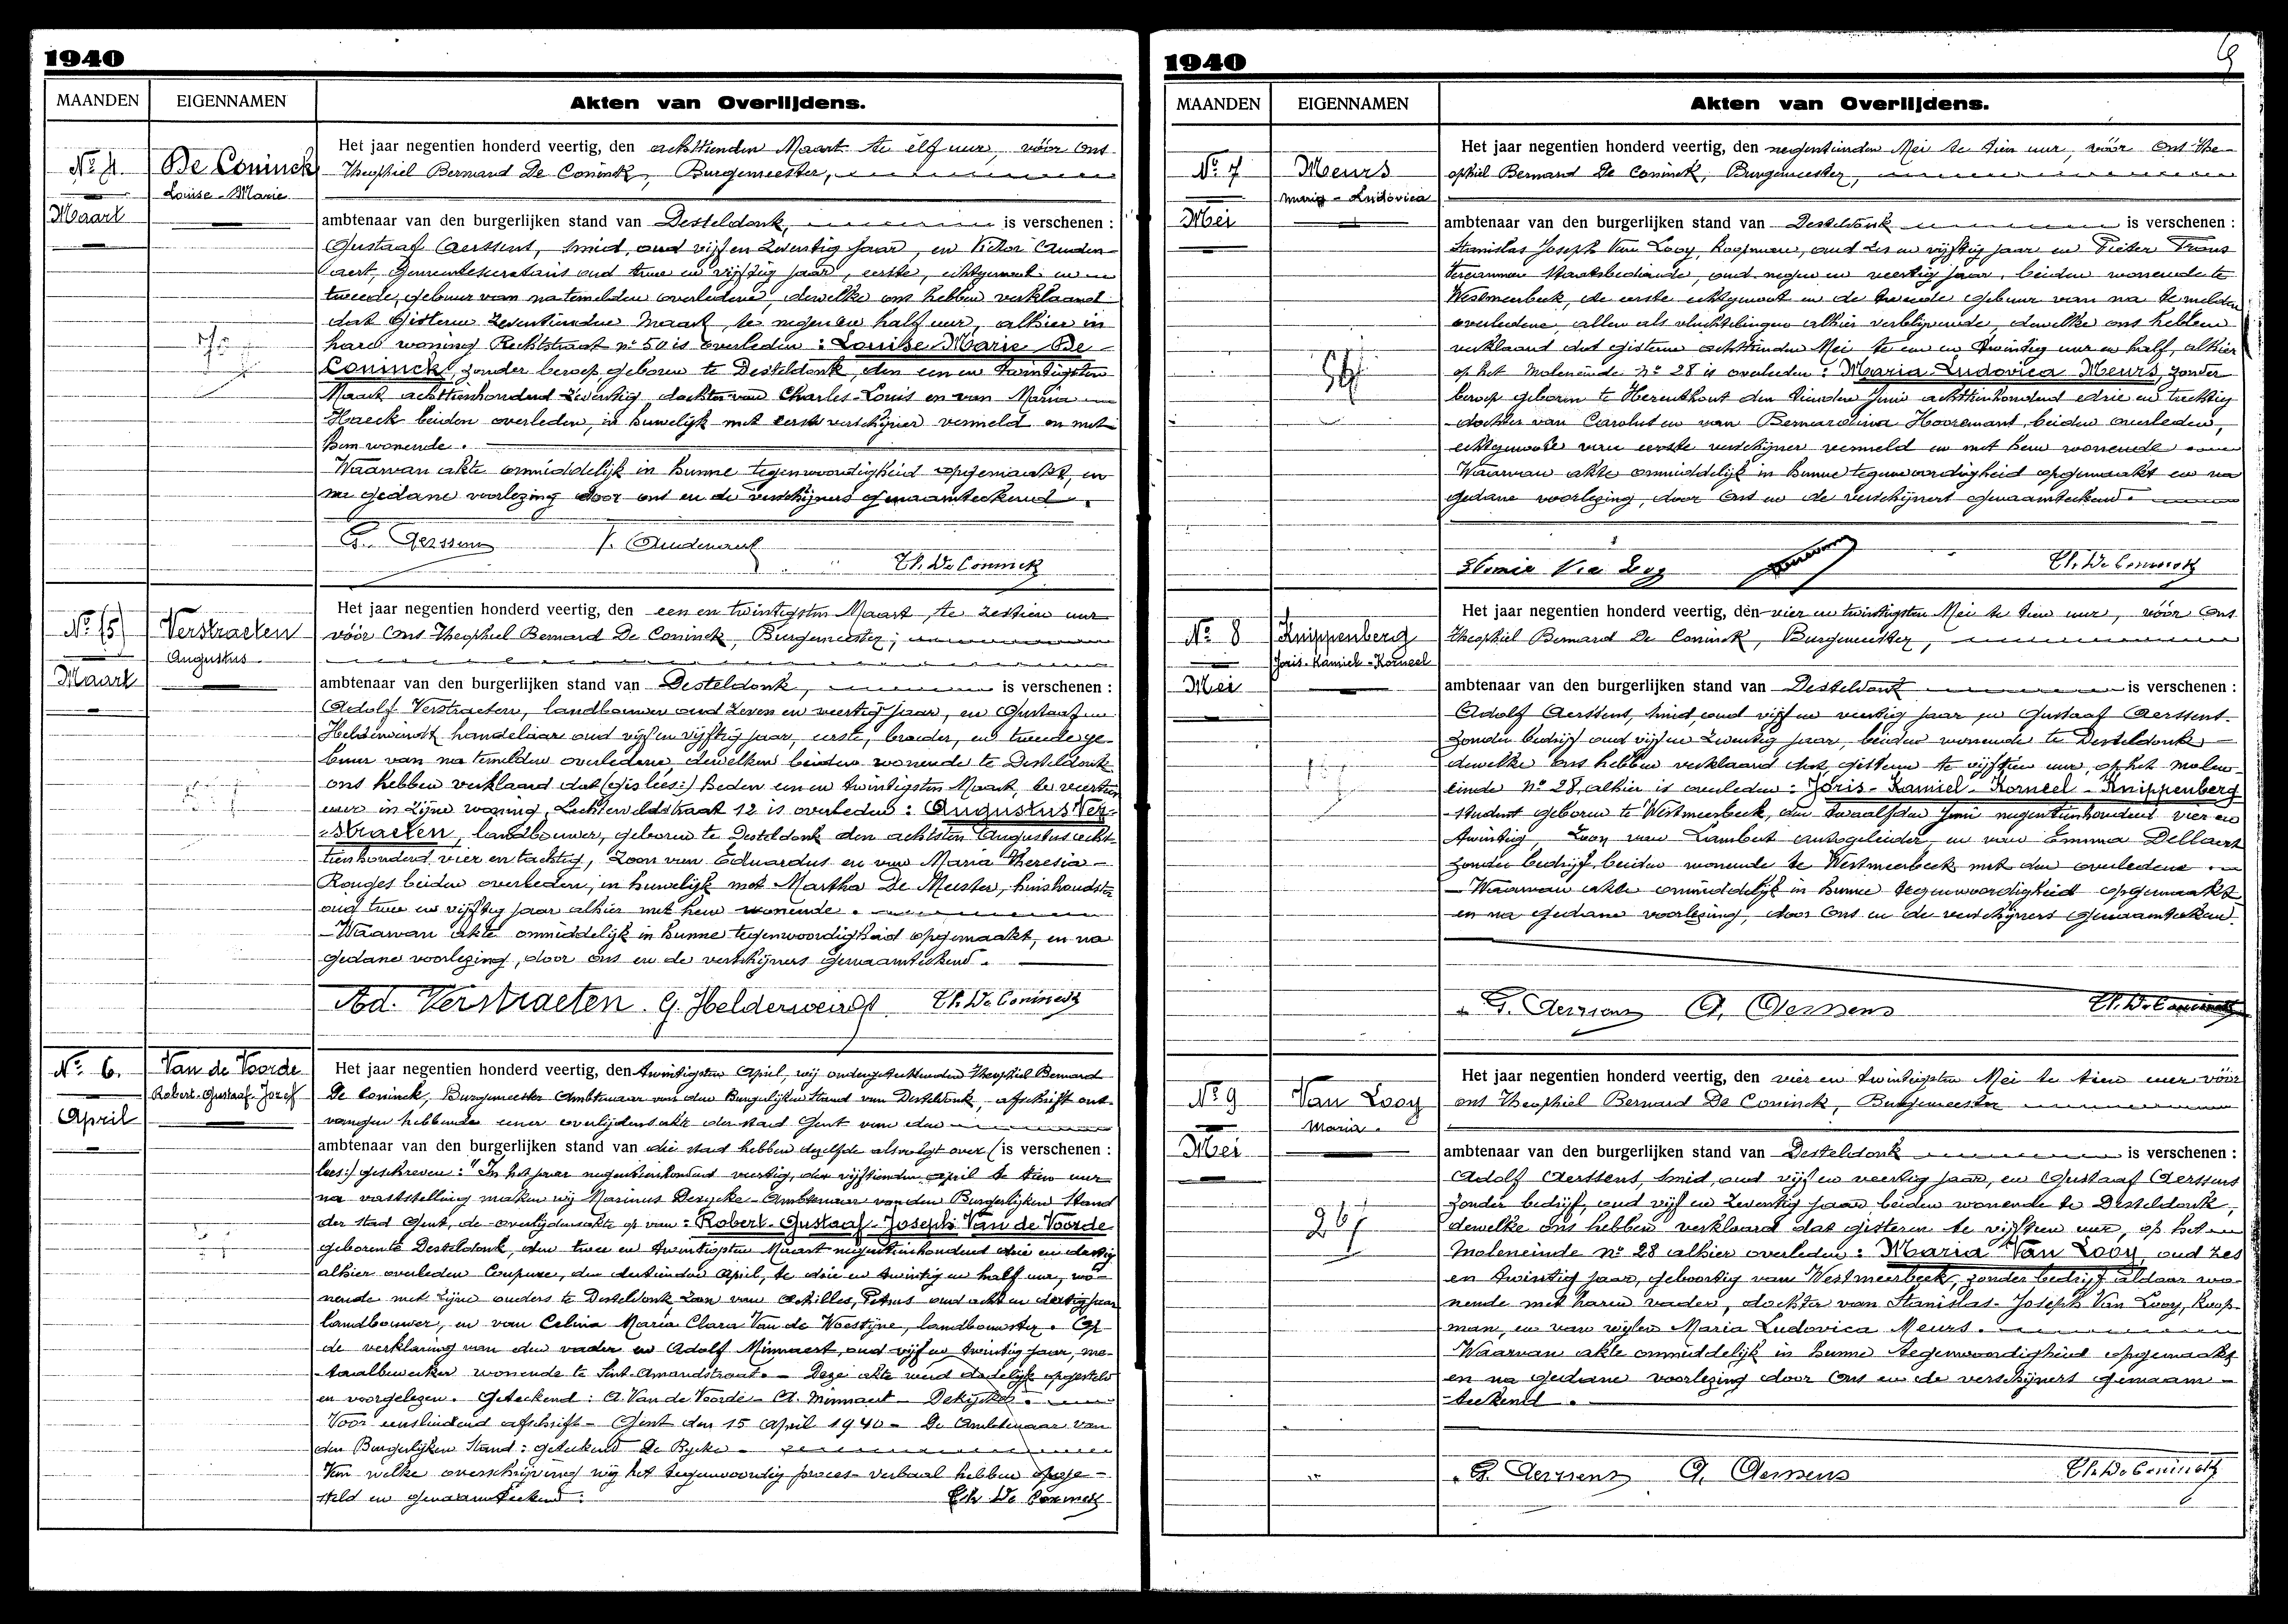 1940
MAANDEN EIGENNAMEN Akten van Overlijdens.
Nº 4
Maart
De Coninck
Louise-Marie
Het jaar negentien honderd veertig, den achttienden Maart te elf uur, vóór Ons
Theophiel Bernard De Coninck, Burgemeester,
ambtenaar van den burgerlijken stand van Desteldonk, is verschenen :
Gustaaf Aerssens, smid, oud vijf en zeventig jaar, en Victor Auden-
aert, Gemeentesecretaris oud twee en vijftig jaar, eerste, echtgenoot en
tweede, gebuur van natemelden overledene, dewelke ons hebben verklaard
dat gisteren zeventienden Maart, te negen en half uur, alhier in
hare woning Rechtstraat nº 50 is overleden : Louise Marie De
Coninck, zonder beroep, geboren te Desteldonk, den een en twintigsten
Maart achttienhonderd zeventig, dochter van Charles-Louis en van Maria
Haeck beiden overleden, in huwelijk met eerste verschijner vermeld en met
hem wonende.
Waarvan akte onmiddelijk in hunne tegenwoordigheid opgemaakt, en
na gedane voorlezing door ons en de verschijners genaamteekend.
G. Aerssens V. Audenaert
Th. De Coninck
Nº 5
Maart
Verstraeten
Augustus
Het jaar negentien honderd veertig, den een en twintigsten Maart, te zestien uur
vóór Ons Theophiel Bernard De Coninck, Burgemeester,
ambtenaar van den burgerlijken stand van Desteldonk, is verschenen :
Adolf Verstraeten, landbouwer oud zeven en veertig jaar, en Gustaaf
Helderweirdt handelaar oud vijf en vijftig jaar, eerste, broeder, en tweede ge-
buur van na temelden overledene, dewelken beiden wonende te Desteldonk
ons hebben verklaard dat (gis lees:) heden een en twintigsten Maart, te veertien
uur in zijne woning, Lechtenveldstraat 12 is overleden : Augustus Ver-
straeten, landbouwer, geboren te Desteldonk den achtsten Augustus acht-
tienhonderd vier en tachtig, zoon van Eduardus en van Maria Theresia
Rouges beiden overleden, in huwelijk met Martha De Meester, huishoudster
oud twee en vijftig jaar alhier met hem wonende.
Waarvan akte onmiddelijk in hunne tegenwoordigheid opgemaakt, en na
gedane voorlezing, door ons en de verschijners genaamteekend.
Ad. Verstraeten. G. Helderweirdt Th. De Coninck
Nº 6.
April
Van de Voorde
Robert-Gustaaf-Jozef
Het jaar negentien honderd veertig, den twintigsten April, wij ondergeteekenden Theophiel Bernard
De Coninck, Burgemeester Ambtenaar van den Burgerlijken Stand van Desteldonk, afschrift ont-
vangen hebbende eener overlijdensakte der stad Gent van den
ambtenaar van den burgerlijken stand van die stad hebben dezelfde alsvolgt over (is verschenen :
lees:) geschreven : "In het jaar negentienhonderd veertig, den vijftienden april te tien uur
na vaststelling maken wij Marinus Derycke Ambtenaar van den Burgerlijken Stand
der stad Gent, de overlijdensakte op van : Robert-Gustaaf-Joseph Van de Voorde
geboren te Desteldonk, den twee en twintigsten Maart negentienhonderd drie en dertig
alhier overleden Coupure, den dertienden April, te drie en twintig en half uur, wo-
nende met zijne ouders te Desteldonk zoon van Achilles, Petrus oud acht en dertig jaar
landbouwer, en van Celina Maria Clara Van de Woestijne, landbouwster. Op
de verklaring van den vader en Adolf Minnaert, oud vijf en twintig jaar, me-
taalbewerker wonende te Sint-Amandstraat. - Deze akte werd dadelijk opgesteld
en voorgelezen. Geteekend : A. Van de Voorde - A. Minnaert - Derycke.
Voor eensluidend afschrift - Gent den 15 April 1940 - De Ambtenaar van
den Burgerlijken Stand : geteekend De Rycke
Van welke overschrijving wij het tegenwoordig proces-verbaal hebben opge-
steld en genaamteekend. Th De Coninck
1940
MAANDEN EIGENNAMEN Akten van Overlijdens.
Nº 7
Mei
Meurs
Maria-Ludovica
Het jaar negentien honderd veertig, den negentienden Mei te tien uur, vóór Ons The-
ophiel Bernard De Coninck, Burgemeester,
ambtenaar van den burgerlijken stand van Desteldonk is verschenen :
Stanislas Joseph Van Looy, koopman, oud zes en vijftig jaar en Pieter Frans
Staatsbediende, oud negen en veertig jaar, beiden wonende te
Westmeerbeek, de eerste echtgenoot en de tweede gebuur van na te melden
overledene, allen als vluchtelingen alhier verblijvende, dewelke ons hebben
verklaard dat gisteren achttienden Mei te een en twintig uur en half, alhier
op het Moleneinde nº 28 is overleden : Maria Ludovica Meurs, zonder
beroep geboren te Herenthout den tienden Juni achttienhonderd drie en tachtig
dochter van Carolus en van Bernardina Hooremans, beiden overleden,
echtgenoote van eerste verschijner vermeld en met hem wonende
Waarvan akte onmiddelijk in hunne tegenwoordigheid opgemaakt en na
gedane voorlezing, door Ons en de verschijners genaamteekend.
Th. De Coninck
Nº 8
Mei
Knippenberg
Joris-Kamiel-Korneel
Het jaar negentien honderd veertig, den vier en twintigsten Mei te tien uur, vóór Ons
Theophiel Bernard De Coninck, Burgemeester,
ambtenaar van den burgerlijken stand van Desteldonk is verschenen :
Adolf Aerssens, smid, oud vijf en veertig jaar en Gustaaf Aerssens
zonder bedrijf oud vijf en zeventig jaar, beiden wonende te Desteldonk
dewelke ons hebben verklaard dat gisteren te vijftien uur, op het molen-
einde nº 28, alhier is overleden : Joris-Kamiel-Korneel-Knippenberg
student geboren te Westmeerbeek, den twaalfden Juni negentienhonderd vier en
twintig zoon van Lambert autogeleider, en van Emma Dellaert
zonder bedrijf, beiden wonende te Westmeerbeek met den overledene
Waarvan akte onmiddelijk in hunne tegenwoordigheid opgemaakt
en na gedane voorlezing, door Ons en de verschijners genaamteekend
G. Aerssens A. Aerssens Th. De Coninck
Nº 9
Mei
Van Looy
Maria.
267
Het jaar negentien honderd veertig, den vier en twintigsten Mei te tien uur vóór
ons Theophiel Bernard De Coninck, Burgemeester
ambtenaar van den burgerlijken stand van Desteldonk is verschenen :
Adolf Aerssens, smid, oud vijf en veertig jaar, en Gustaaf Aerssens
zonder bedrijf, oud vijf en zeventig jaar beiden wonende te Desteldonk,
dewelke ons hebben verklaard dat gisteren te vijftien uur, op het
moleneinde nº 28 alhier overleden : Maria Van Looy oud zes
en twintig jaar, geboortig van Westmeerbeek, zonder bedrijf aldaar wo-
nende met haren vader, dochter van Stanislas-Joseph Van Looy, koop-
man, en van wijlen Maria Ludovica Meurs.
Waarvan akte onmiddelijk in hunne tegenwoordigheid opgemaakt
en na gedane voorlezing door Ons en de verschijners genaam-
teekend.
G. Aerssens A. Aerssens Th. De Coninck